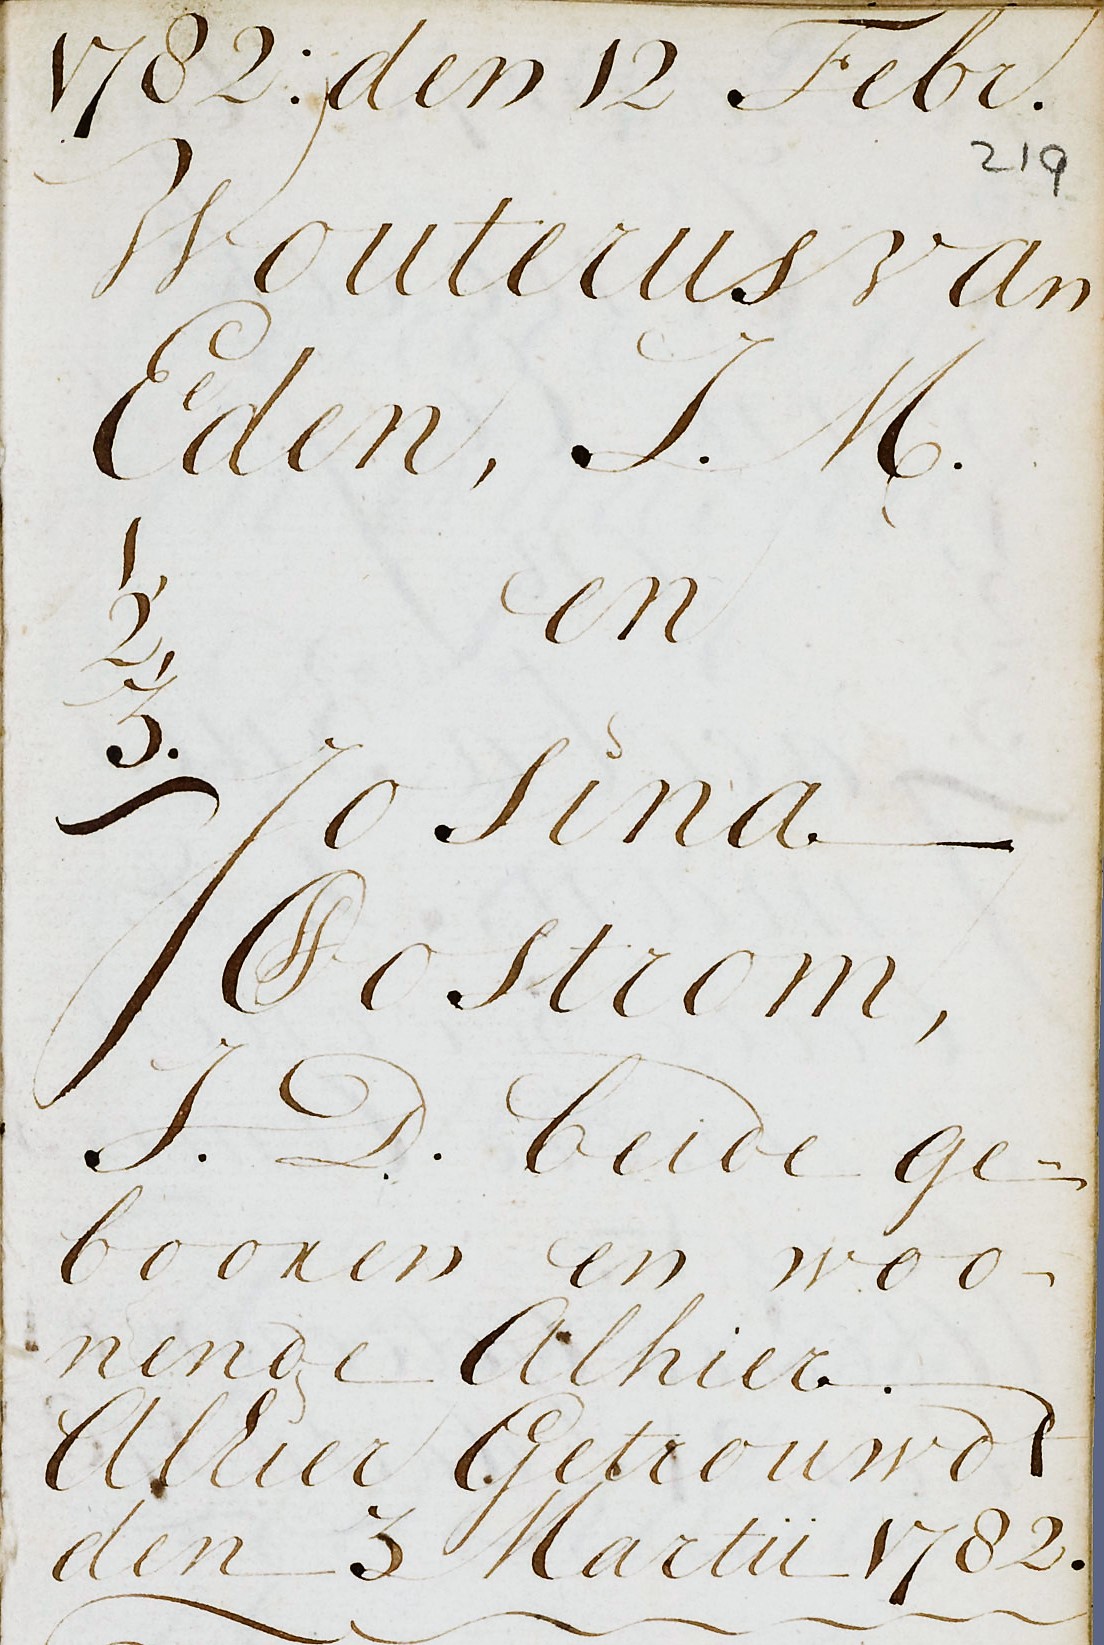 1782: den 12 Febr.
219
Wouterus van
Eden, J. M.
1,
en
2,
3.
Josina
Oostrom,
J. D. beide ge-
booren en woo-
nende Alhier.
Alhier Getrouwdt
den 3 Martii 1782.